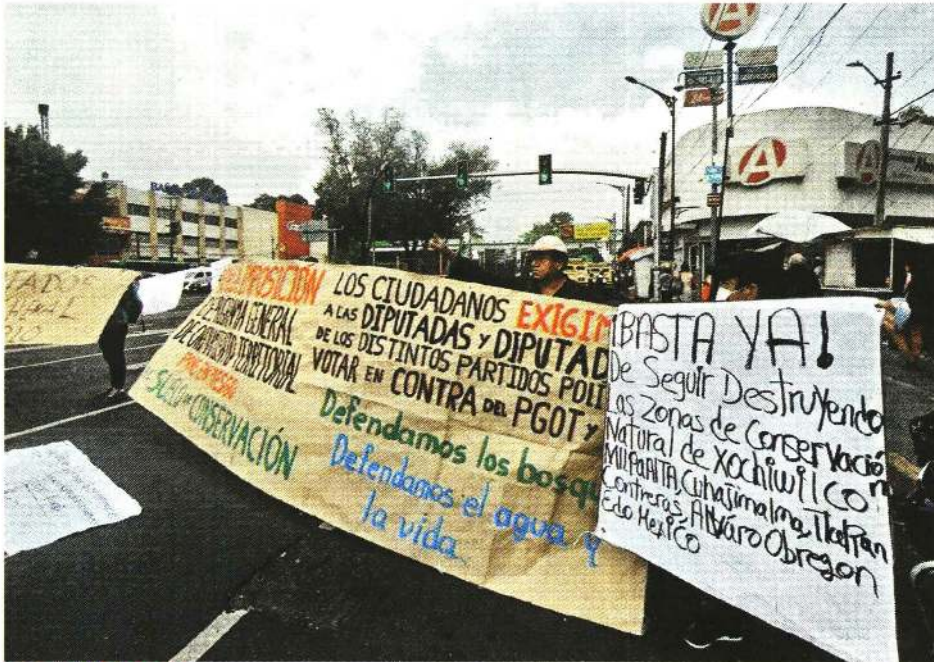 TADOS
OPOSICIÓN
PROGRAMA GENERAL
DE ORDENAMIENTO TERRITORIAL
SUELO DE CONSERVACIÓN
LOS CIUDADANOS EXIGIM
A LAS DIPUTADAS Y DIPUTAD
DE LOS DISTINTOS PARTIDOS POLÍ
VOTAR EN CONTRA DEL PGOT Y
Defendamos los bosqu
Defendamos el agua y
la vida
¡BASTA YA!
De Seguir Destruyendo
Las Zonas de Conservación
Natural de Xochiwilco
MilpaAlta, Cuhajimalma, Tlalpan
Contreras, Alvaro Obregon
Edo Mexico
A
A